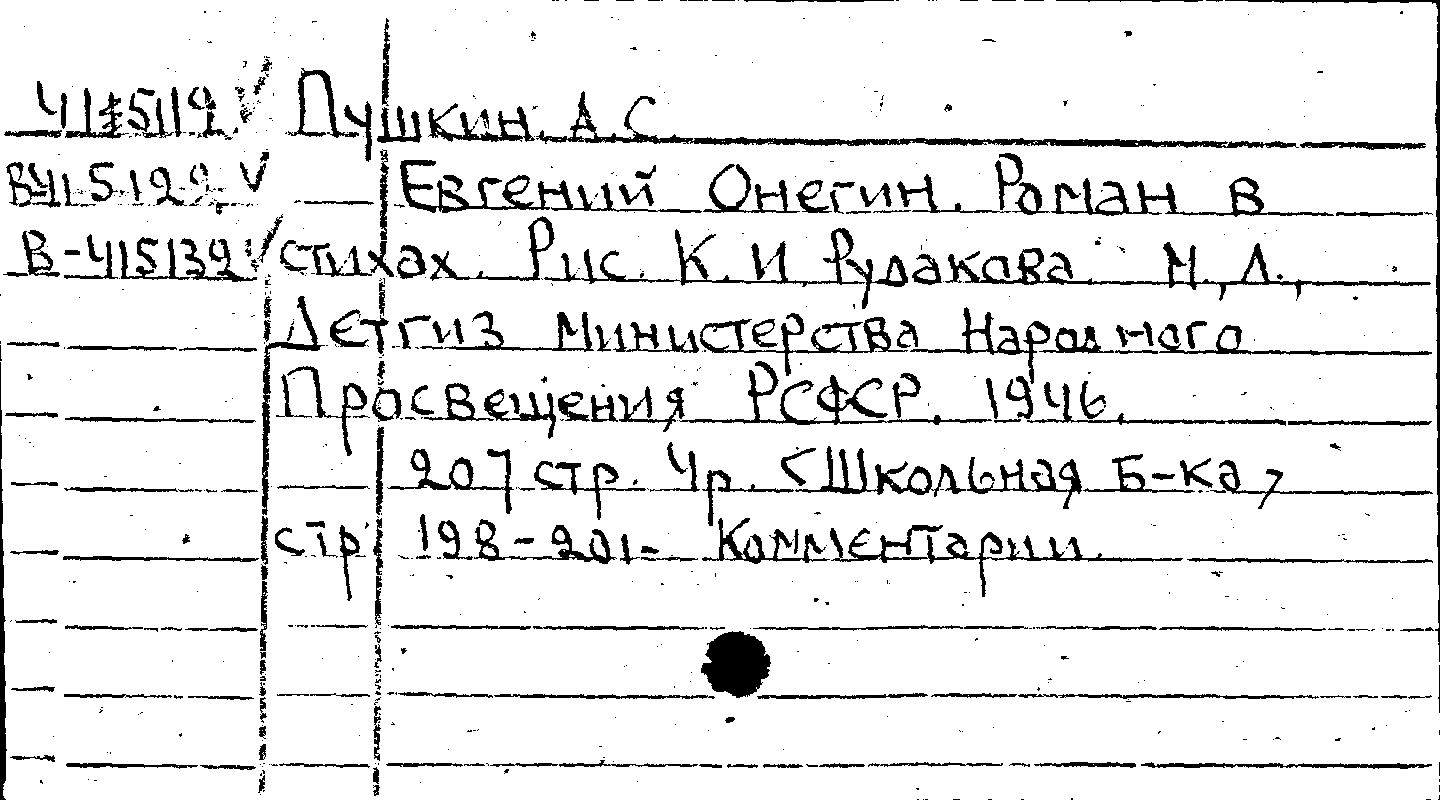 415119 ✓ Пушкин. А.С.
В-415129 ✓ Евгений Онегин. Роман в
В-415139 ✓ стихах. Рис. К.И. Рудакова. М., Л.,
Детгиз Министерства Народного
Просвещения РСФСР. 1946.
207 стр. Чр. <Школьная Б-ка>
стр. 198-201- Комментарии.